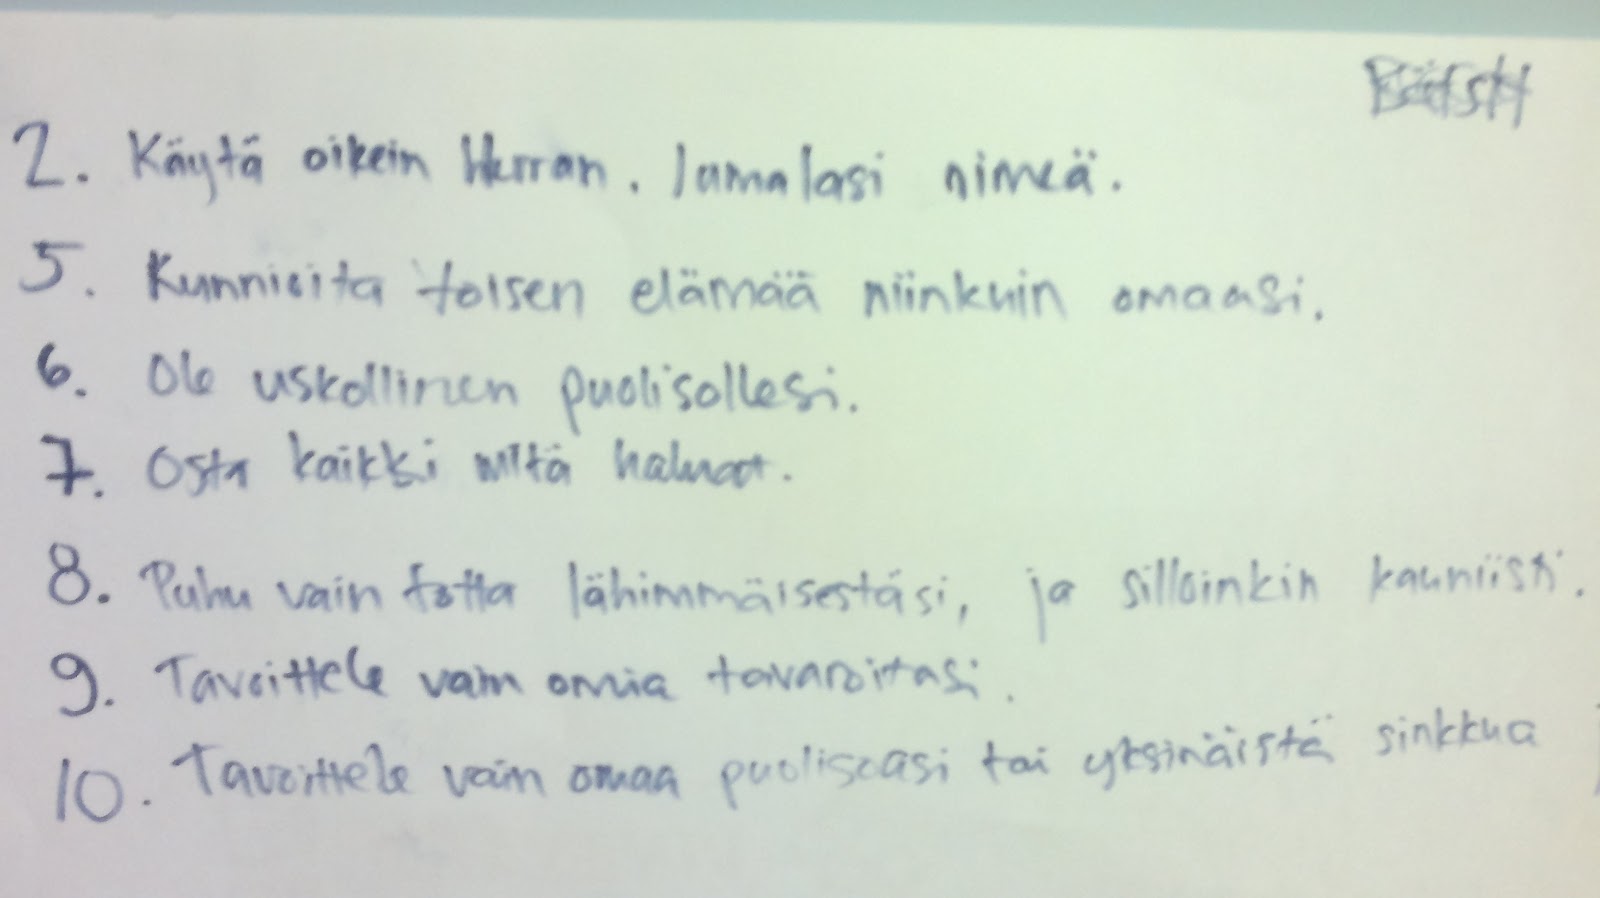 2. Käytä oikein Herran. Jumalasi nimeä.
5. Kunnioita toisen elämää niinkuin omaasi.
6. Ole uskollinen puolisollesi.
7. Osta kaikki mitä haluat.
8. Puhu vain totta lähimmäisestäsi, ja silloinkin kauniisti.
9. Tavoittele vain omia tavaroitasi.
10. Tavoittele vain omaa puolisoasi tai yksinäistä sinkkua